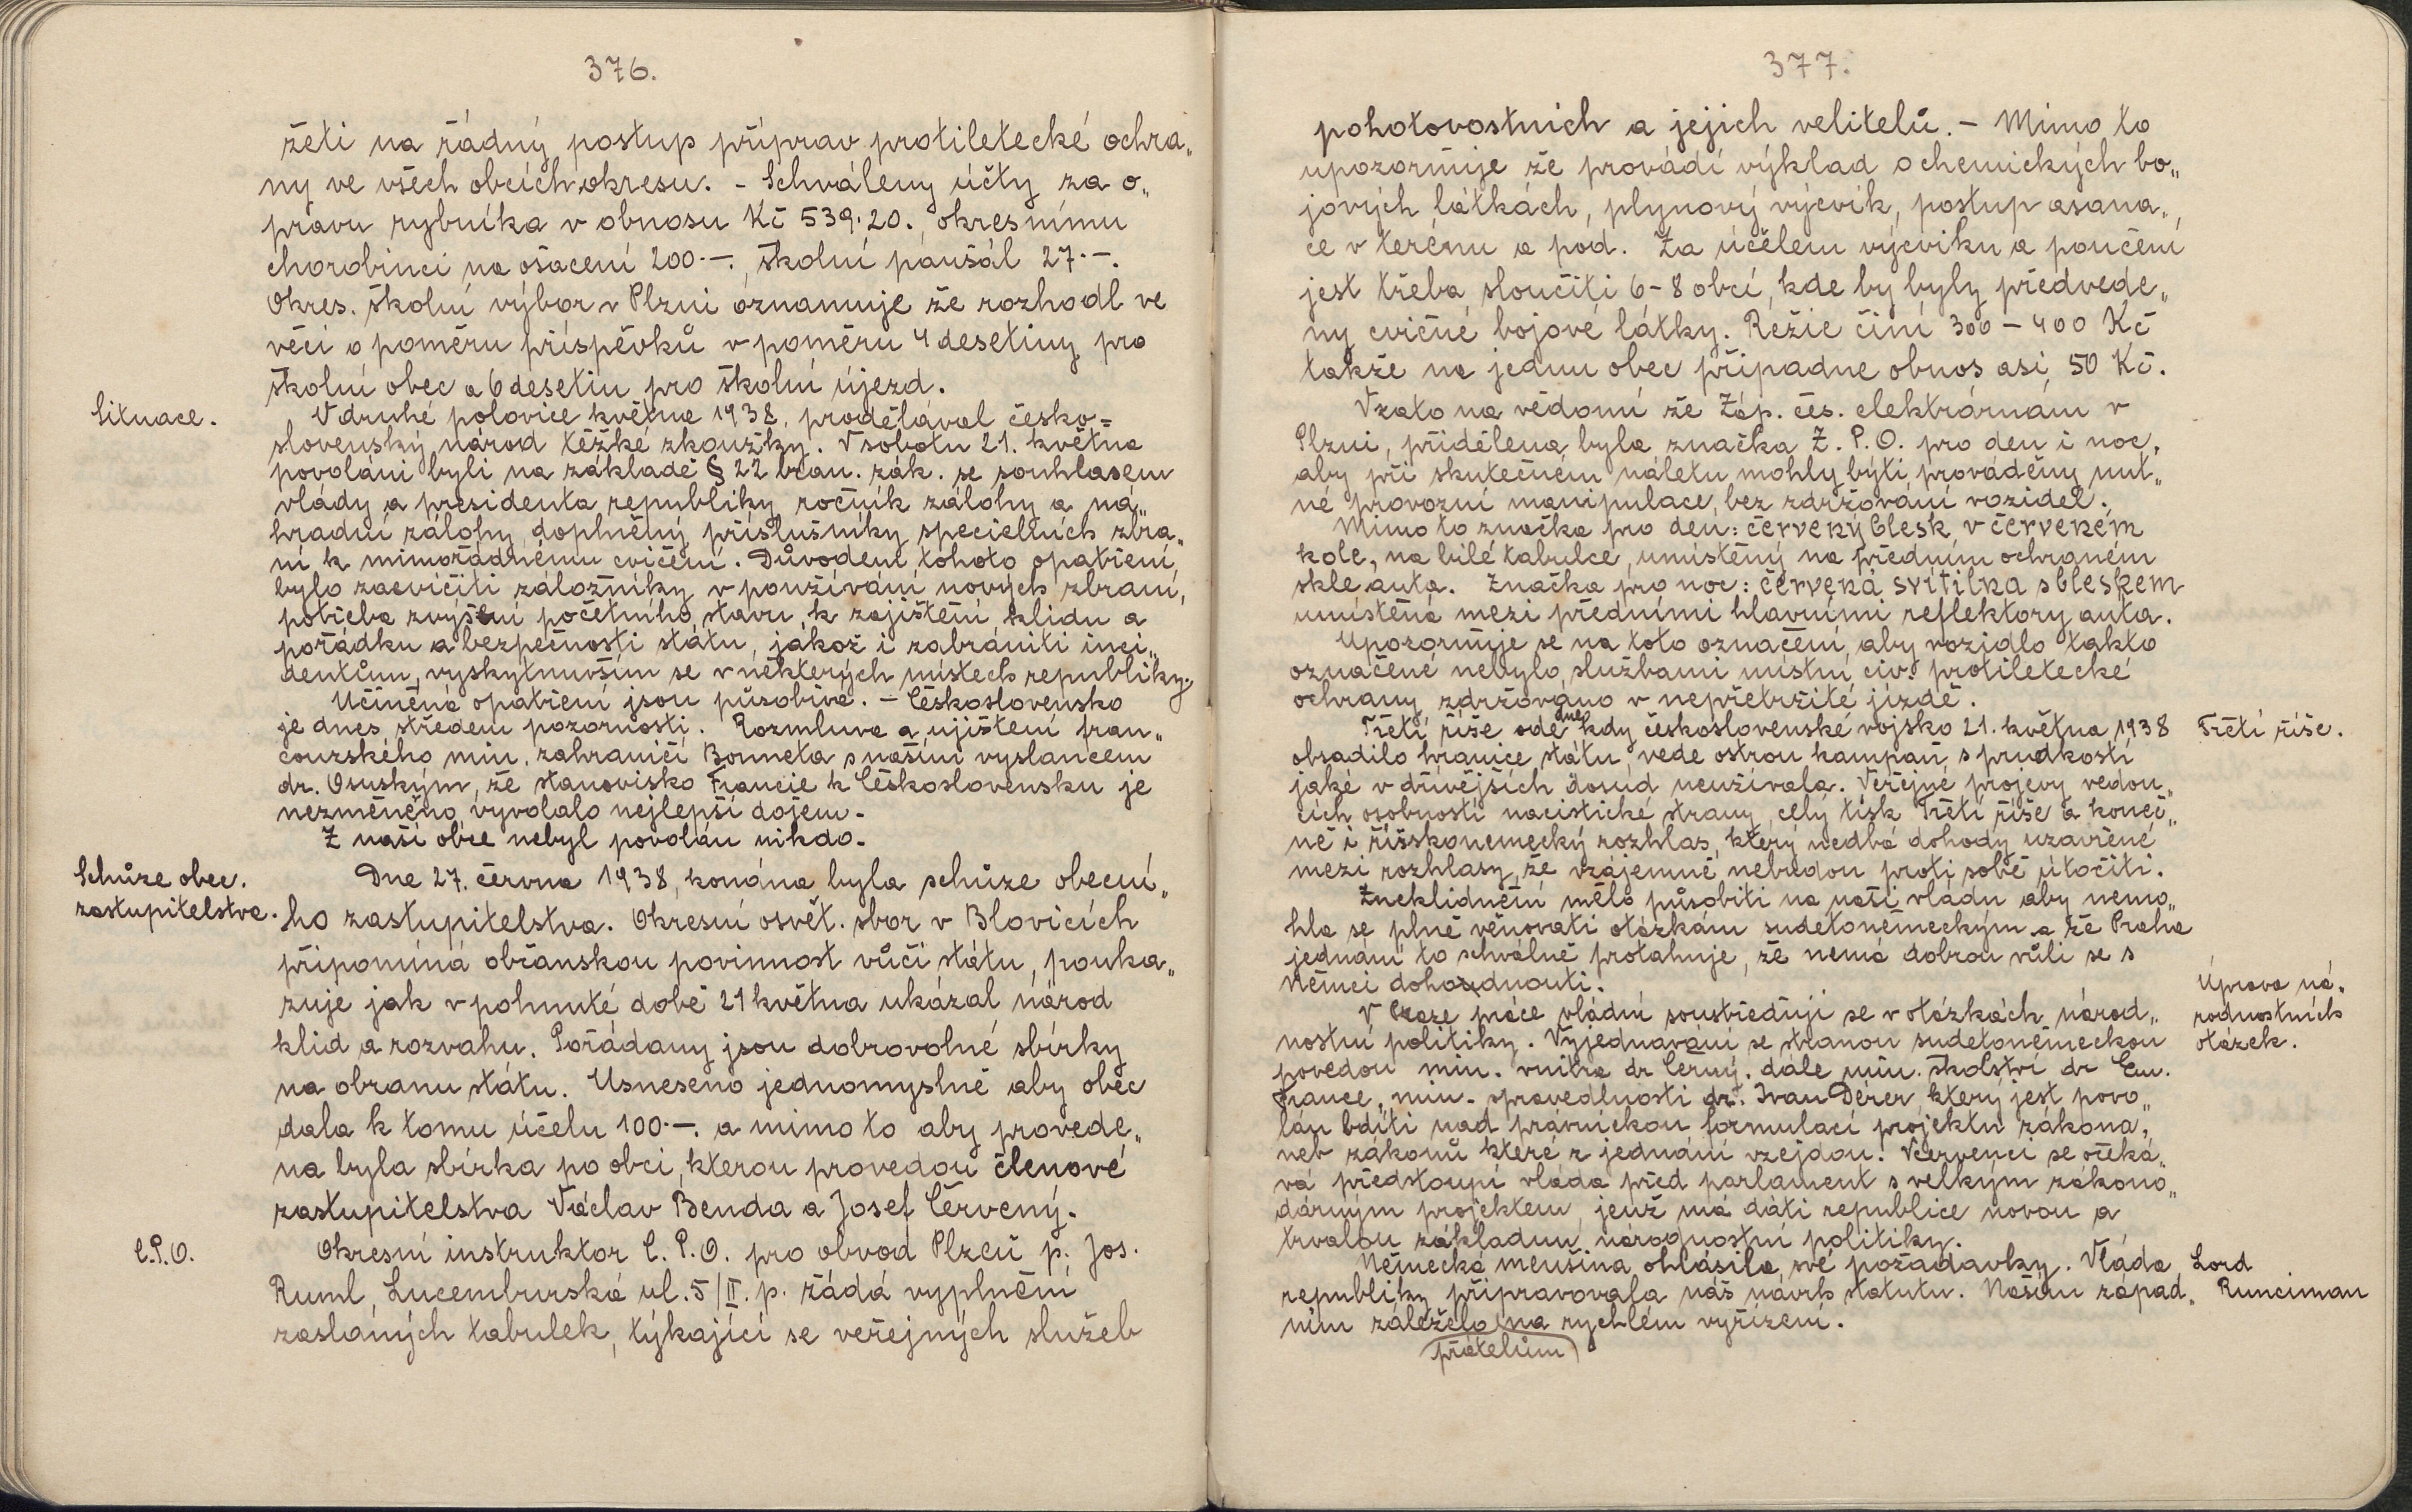 376.
žeti na řádný postup příprav protiletecké ochra„
ny ve všech obcích okresu. - Schváleny účty za o„
pravu rybníka v obnosu Kč 539·20., okresnímu
chorobinci na ošacení 200·-., školní paušál 27·-.
Okres. školní výbor v Plzni oznamuje že rozhodl ve
věci o poměru příspěvků v poměru 4 desetiny pro
školní obec a 6 desetin pro školní újezd.
Situace.
V druhé polovice května 1938, prodělával česko=
slovenský národ těžké zkoužky. V sobotu 21. května
povoláni byli na základě § 22 bran. zák. se souhlasem
vlády a presidenta republiky ročník zálohy a ná„
hradní zálohy, doplněný příslušníky specielních zbra„
ní k mimořádnému cvičení. Důvodem tohoto opatření,
bylo zacvičiti záložníky v používání nových zbraní,
potřeba zvýšení početního stavu, k zajištění klidu a
pořádku a bezpečnosti státu, jakož i zabrániti inci„
dentům, vyskytnuvším se v některých místech republiky.
Učiněná opatření jsou působivá. - Československo
je dnes středem pozornosti. Rozmluva a ujištění fran„
couzského min. zahraničí Bonneta s naším vyslancem
dr. Osuským, že stanovisko Francie k Československu je
nezměněno, vyvolalo nejlepší dojem.
Z naší obce nebyl povolán nikdo.
Schůze obec.
zastupitelstva.
Dne 27. června 1938, konána byla schůze obecní„
ho zastupitelstva. Okresní osvět. sbor v Blovicích
připomíná občanskou povinnost vůči státu, pouka„
zuje jak v pohnuté době 21 května ukázal národ
klid a rozvahu. Pořádany jsou dobrovolné sbírky
na obranu státu. Usneseno jednomyslně aby obec
dala k tomu účelu 100·-. a mimo to aby provede„
na byla sbírka po obci, kterou provedou členové
zastupitelstva Václav Benda a Josef Červený.
C.P.O.
Okresní instruktor C. P. O. pro obvod Plzeň p. Jos.
Ruml, Lucemburská ul. 5/II. p. žádá vyplnění
zaslaných tabulek, týkající se veřejných služeb
377.
pohotovostních a jejich velitelů. - Mimo to
upozorňuje že provádí výklad o chemických bo„
jových látkách, plynový výcvik, postup asana„
ce v terénu a pod. Za účelem výcviku a poučení
jest třeba sloučiti 6-8 obcí, kde by byly předvede„
ny cvičné bojové látky. Režie činí 300 - 400 Kč
takže na jednu obec připadne obnos asi 50 Kč.
Vzato na vědomí že Záp. čes. elektrárnám v
Plzni, přidělena byla značka Z. P. O. pro den i noc,
aby při skutečném náletu mohly býti prováděny nut„
né provozní manipulace, bez zdržování vozidel.
Mimo to značka pro den: červený blesk v červeném
kole, na bílé tabulce, umístěný na předním ochraném
skle auta. Značka pro noc: červená svítilna s bleskem
umístěna mezi předními hlavními reflektory auta.
Upozorňuje se na toto označení, aby vozidlo takto
označené nebylo službami místní civ. protiletecké
ochrany zdržováno v nepřetržité jízdě.
Třetí říše.
Třetí říše ode dne kdy československé vojsko 21. května 1938
obsadilo hranice státu vede ostrou kampaň s prudkostí
jaké v dřívějších dosud neužívala. Veřejné projevy vedou„
cích osobností nacistické strany, celý tisk Třetí říše a koneč„
ně i říšskoněmecký rozhlas, který nedbá dohody uzavřené
mezi rozhlasy, že vzájemně nebudou proti sobě útočiti.
Zneklidnění mělo působiti na naši vládu aby nemo„
hla se plně věnovati otázkám sudetoněmeckým a že Praha
jednání to schválně protahuje, že nemá dobrou vůli se s
Němci dohodnouti.
Úprava ná„
rodnostních
otázek.
V Praze práce vládní soustřeďují se v otázkách národ„
nostní politiky. Vyjednávání se stranou sudetoněmeckou
povedou min. vnitra dr Černý, dále min. školství dr Em.
Franke, min. spravedlnosti dr. Ivan Dérer, který jest povo„
lán bdíti nad právnickou formulací projektu zákona,
neb zákonů které z jednání vzejdou. V červenci se očeká„
vá předstoupí vláda před parlament s velkým zákono„
dárným projektem, jenž má dáti republice novou a
trvalou základnu národnostní politiky.
Lord
Runciman
Německá menšina ohlásila své požadavky. Vláda
republiky připravovala náš návrh statutu. Našim západ„
ním přátelům záleželo na rychlém vyřízení.